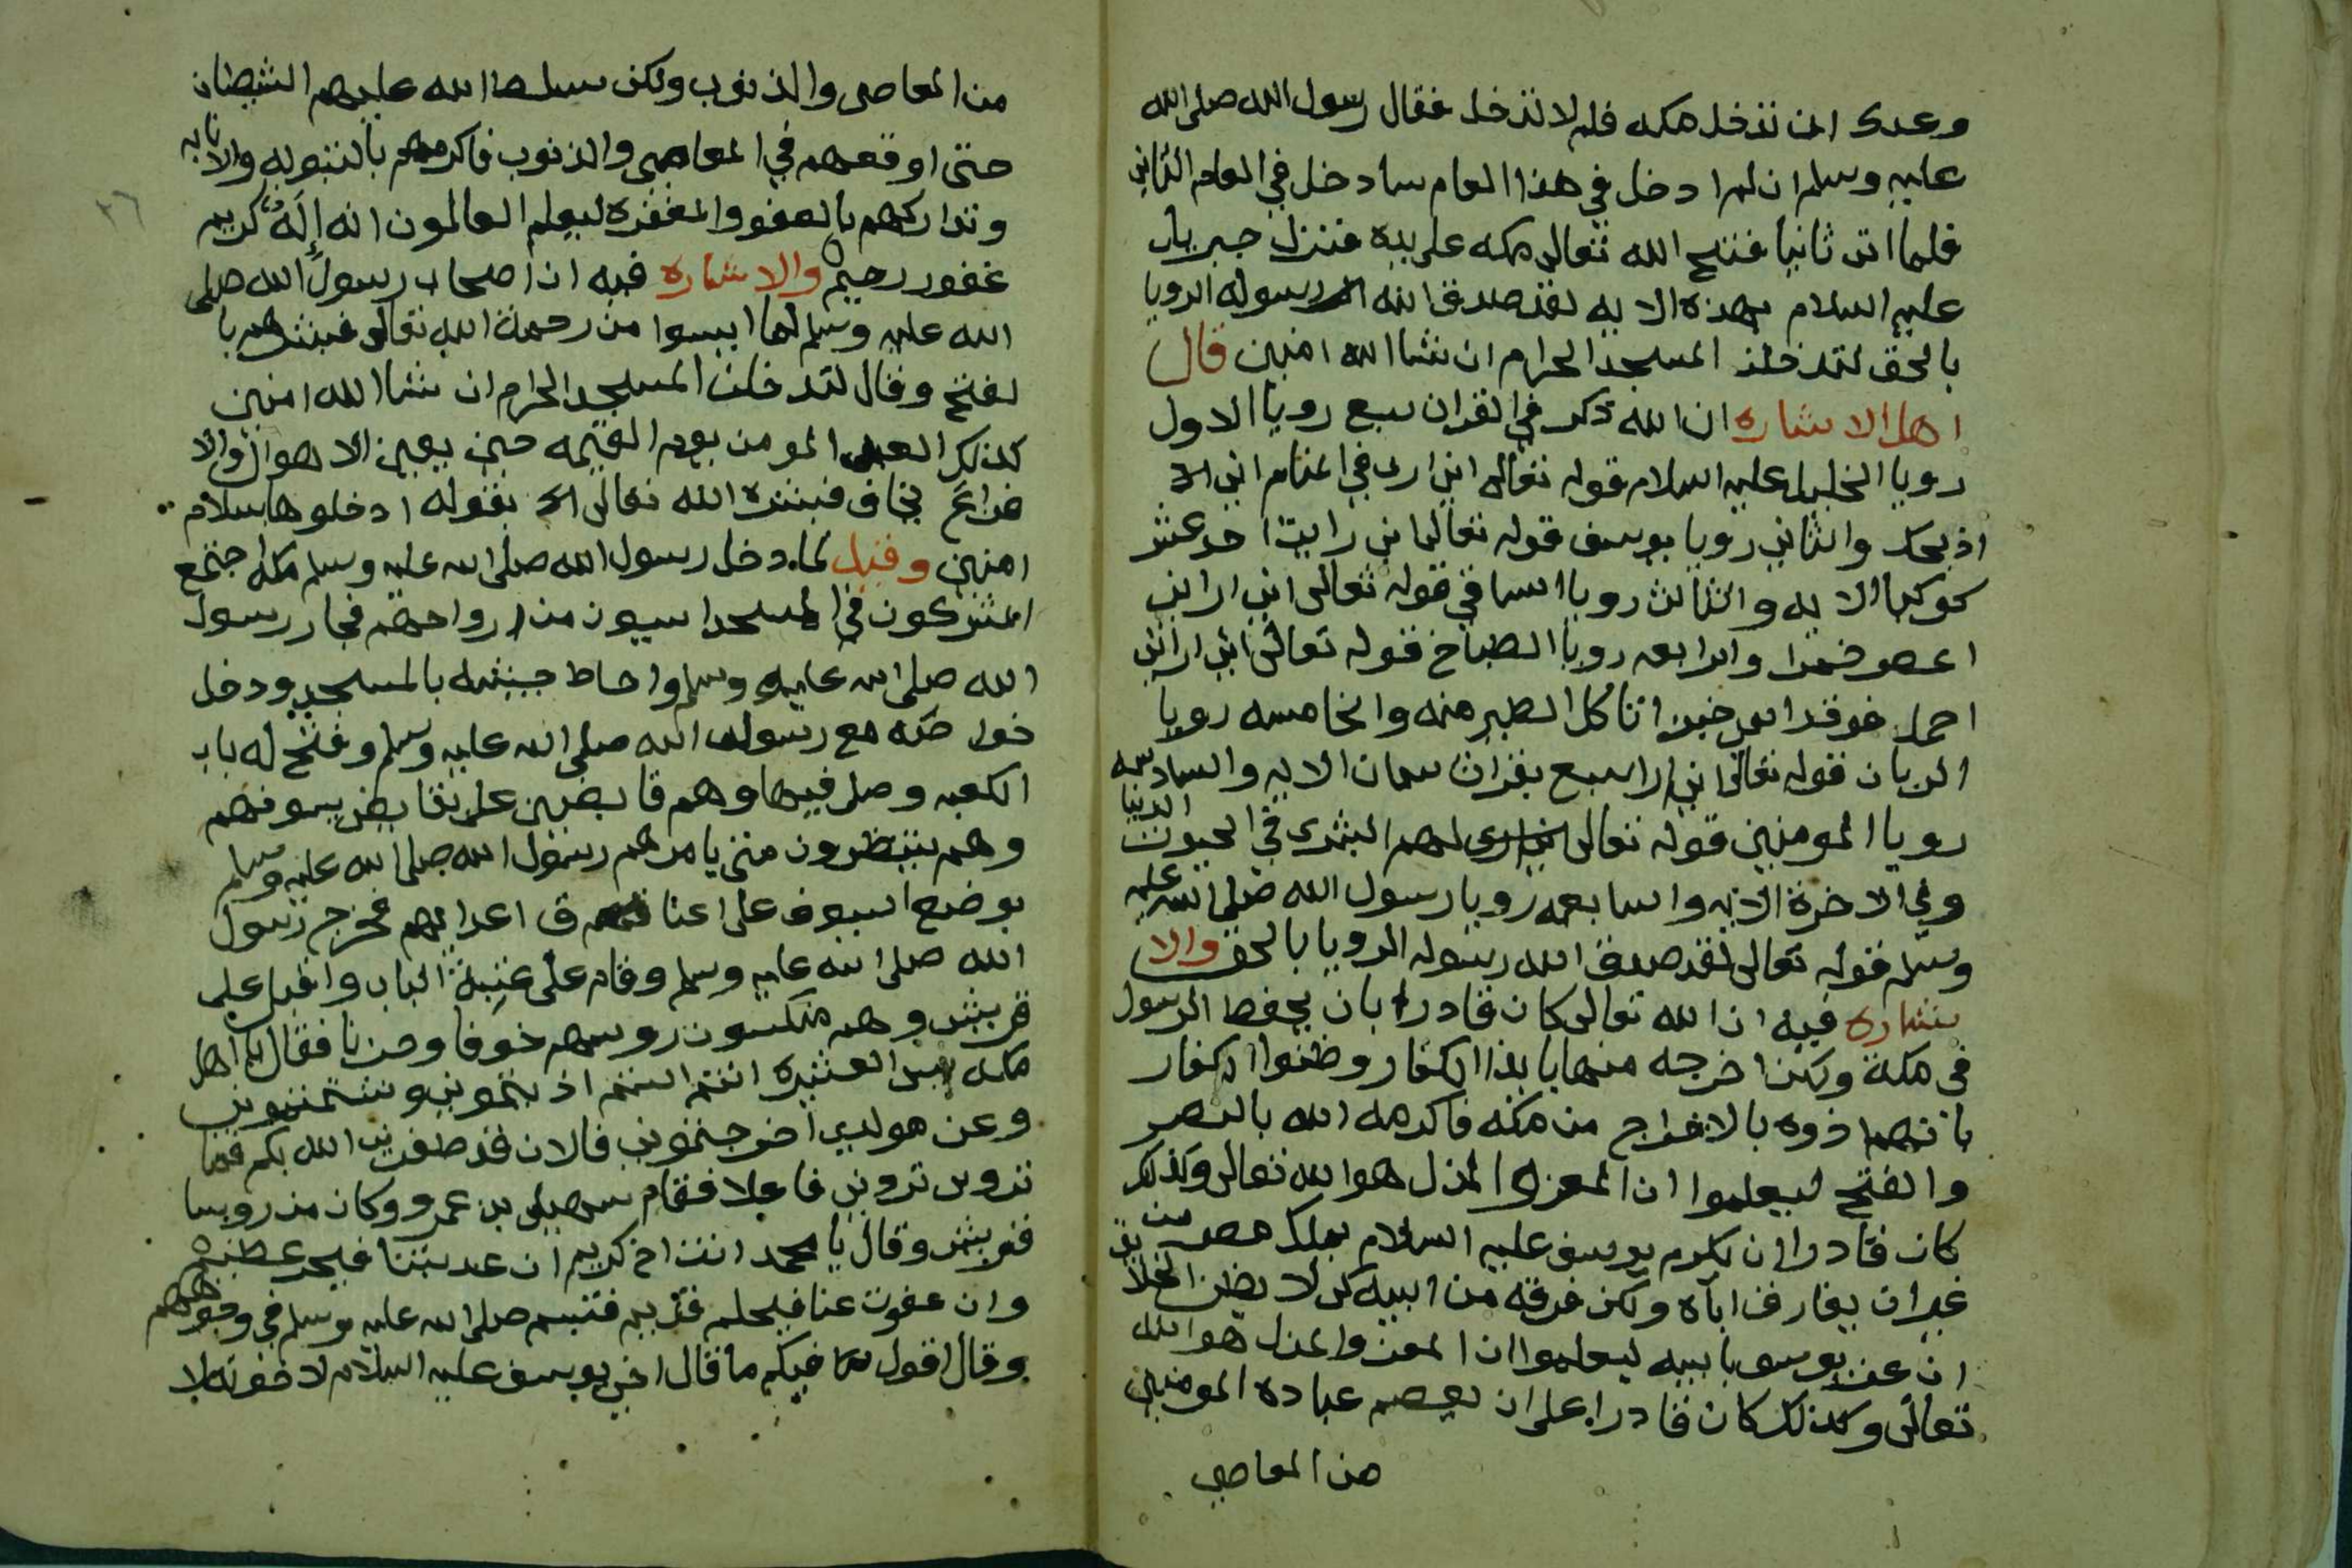 وعدك ان تدخل مكه فلم لا تدخل فقال رسول الله صلى الله
عليه وسلم ان لم ادخل في هذا العام سادخل في العام الثاني
فلما اتى ثانيا ففتح الله تعالى مكه على يده فنزل جبريل
عليه السلام بهذه الايه لقد صدق الله رسوله الرويا
بالحق لتدخلن المسجد الحرام ان شا الله امنين قال
اهل الاشاره ان الله ذكر في القران سبع رويا الاول
رويا الخليل عليه السلام قوله تعالى اني ارى في المنام اني
اذبحك والثاني رويا يوسف قوله تعالى اني رايت احد عشر
كوكبا الايه والثالث رويا الساقي قوله تعالى اني اراني
اعصر خمرا والرابعه رويا الطباخ قوله تعالى اني اراني
احمل فوق راسي خبزا تاكل الطير منه والخامسه رويا
الريان قوله تعالى اني ارا سبع بقرات سمان الايه والسادسه
رويا المومنين قوله تعالى لهم البشرى في الحيوت الدنيا
وفي الاخرة الايه والسابعه رويا رسول الله صلى الله عليه
وسلم قوله تعالى لقد صدق الله رسوله الرويا بالحق والا
شاره فيه ان الله تعالى كان قادرا بان يحفظ الرسول
في مكة ولكن اخرجه منها بايذا الكفار وظنوا الكفار
بانهم اذوه بالاخراج من مكه فاكرمه الله بالنصر
والفتح ليعلموا ان المعز والمذل هو الله تعالى وكذلك
كان قادرا ان يكرم يوسف عليه السلام بملك مصر من
غير ان يفارق اباه ولكن فرقه من ابيه كي لا يظن الخلايق
ان عز يوسف بابيه ليعلموا ان المعز والمذل هو الله
تعالى وكذلك كان قادرا على ان يعصم عباده المومنين
من المعاصي
من المعاصي والذنوب ولكن سلط الله عليهم الشيطان
حتى اوقعهم في المعاصي والذنوب فاكرمهم بالتوبه والانابه
وتداركهم بالعفو والمغفره ليعلم العالمون انه إله كريم
غفور رحيم والاشاره فيه ان اصحاب رسول الله صلى
الله عليه وسلم لما ايسوا من رحمة الله تعالى فبشرهم با
لفتح وقال لتدخلن المسجد الحرام ان شا الله امنين
كذلك العبد المومن يوم القيمه حين يعين الاهوال والا
فزاع يخاف فبشره الله تعالى بقوله ادخلوها بسلام
امنين وقيل لما دخل رسول الله صلى الله عليه وسلم مكه اجتمع
المشركون في المسجد ايسون من ارواحهم فجار رسول
الله صلى الله عليه وسلم واحاط جيشه بالمسجد ودخل
خول مكه مع رسول الله صلى الله عليه وسلم وفتح له باب
الكعبه وصلى فيها وهم قابضين على بقايض سيوفهم
وهم ينتظرون متى يامرهم رسول الله صلى الله عليه وسلم
بوضع السيوف على اعناق اعدايهم فخرج رسول
الله صلى الله عليه وسلم وقام على عتبة الباب واقبل على
قريش وهم منكسون روسهم خوفا وحزنا فقال يا اهل
مكه بيس العشيره انتم الستم اذيتموني وشتمتموني
وعن مولدي اخرجتموني فالان قد ظفرني الله بكم فما
ترون تروني فاعلا فقام سهيل بن عمرو وكان من روسا
قريش وقال يا محمد انت اخ كريم ان عذبتنا فبجرم عظيم
وان عفوت عنا فبحلم قديم فتبسم صلى الله عليه وسلم في وجوههم
وقال اقول فيكم ما قال اخي يوسف عليه السلام لاخوته لا
٢٦